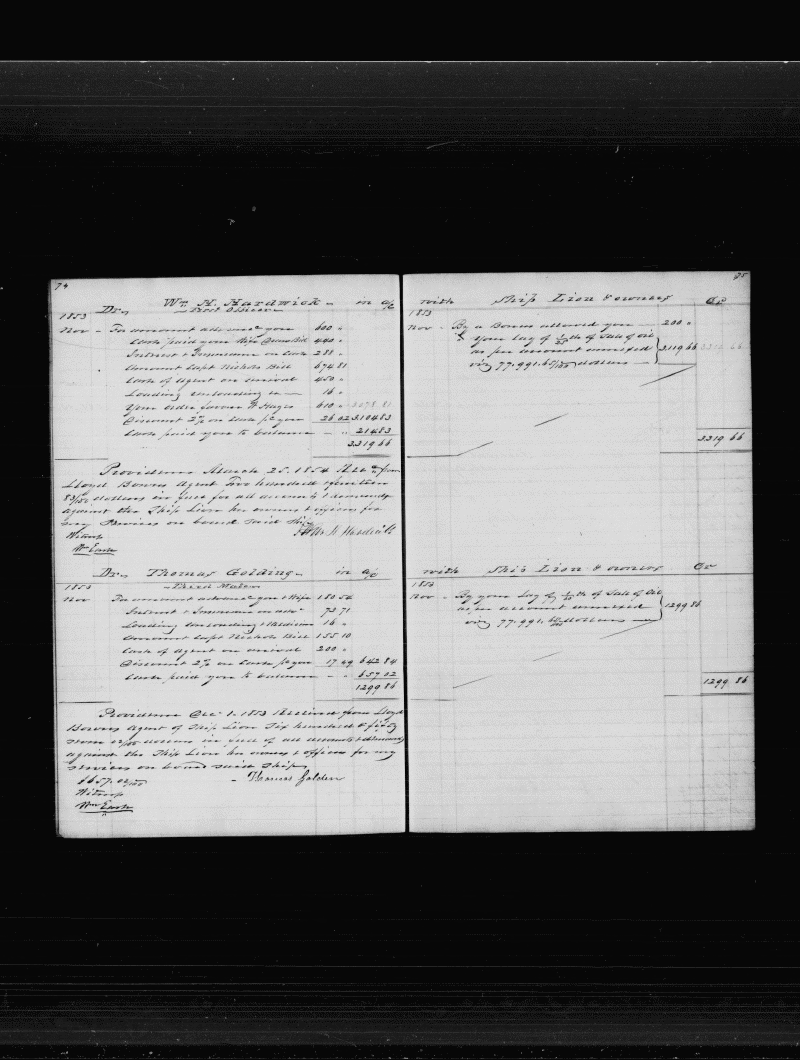 74
Dr. Wm. H. Hardwick in a/c
First Officer
1853
Nov - To amount advanced you 600 "
Cash paid your Wife Bill 440 "
Interest & Insurance on Cash 288 "
Amount Capt Nichols Bill 674 81
Cash of Agent on arrival 450 "
Loading unloading &c 16 "
Your order favor Hayes 610 " 3078 81
Discount 2% on Cash pr year 26 02 3104 83
Cash paid you to balance - " 214 83
3319 66
Providence March 25. 1854 Recd from
Lloyd Bowers Agent Two hundred & fourteen
83/100 dollars in full for all accounts & demands
against the Ship Lion her owners & officers for
my Services on board said Ship
Witness Wm H Hardwick
Wm Earle
Dr. Thomas Golding in a/c
Third Mate
1853
Nov To amount advanced you & Wife 180 54
Interest & Insurance on adv 73 71
Loading Unloading & Medicine 16 "
Amount Capt Nichols Bill 155 10
Cash of Agent on arrival 200 "
Discount 2% on Cash pr year 17 49 642 84
Cash paid you to balance - " 657 02
1299 86
Providence Dec 1. 1853 Received from Lloyd
Bowers Agent of Ship Lion Six hundred & fifty
seven 02/100 dollars in full of all accounts & demands
against the Ship Lion her owners & officers for my
services on board said Ship
$657. 02/100 Thomas Golden
Witness
Wm Earle
75
with Ship Lion & owners Cr
1853
Nov - By a Bonus allowed you 200 "
" Your lay of 1/25th of Sale of Oil
as per account annexed 3119 66
viz 77.991. dollars
3319 66
with Ship Lion & owners Cr
1853
Nov - By your Lay of 1/60th of Sale of Oil
as per account annexed 1299 86
viz 77.991. dollars
1299 86